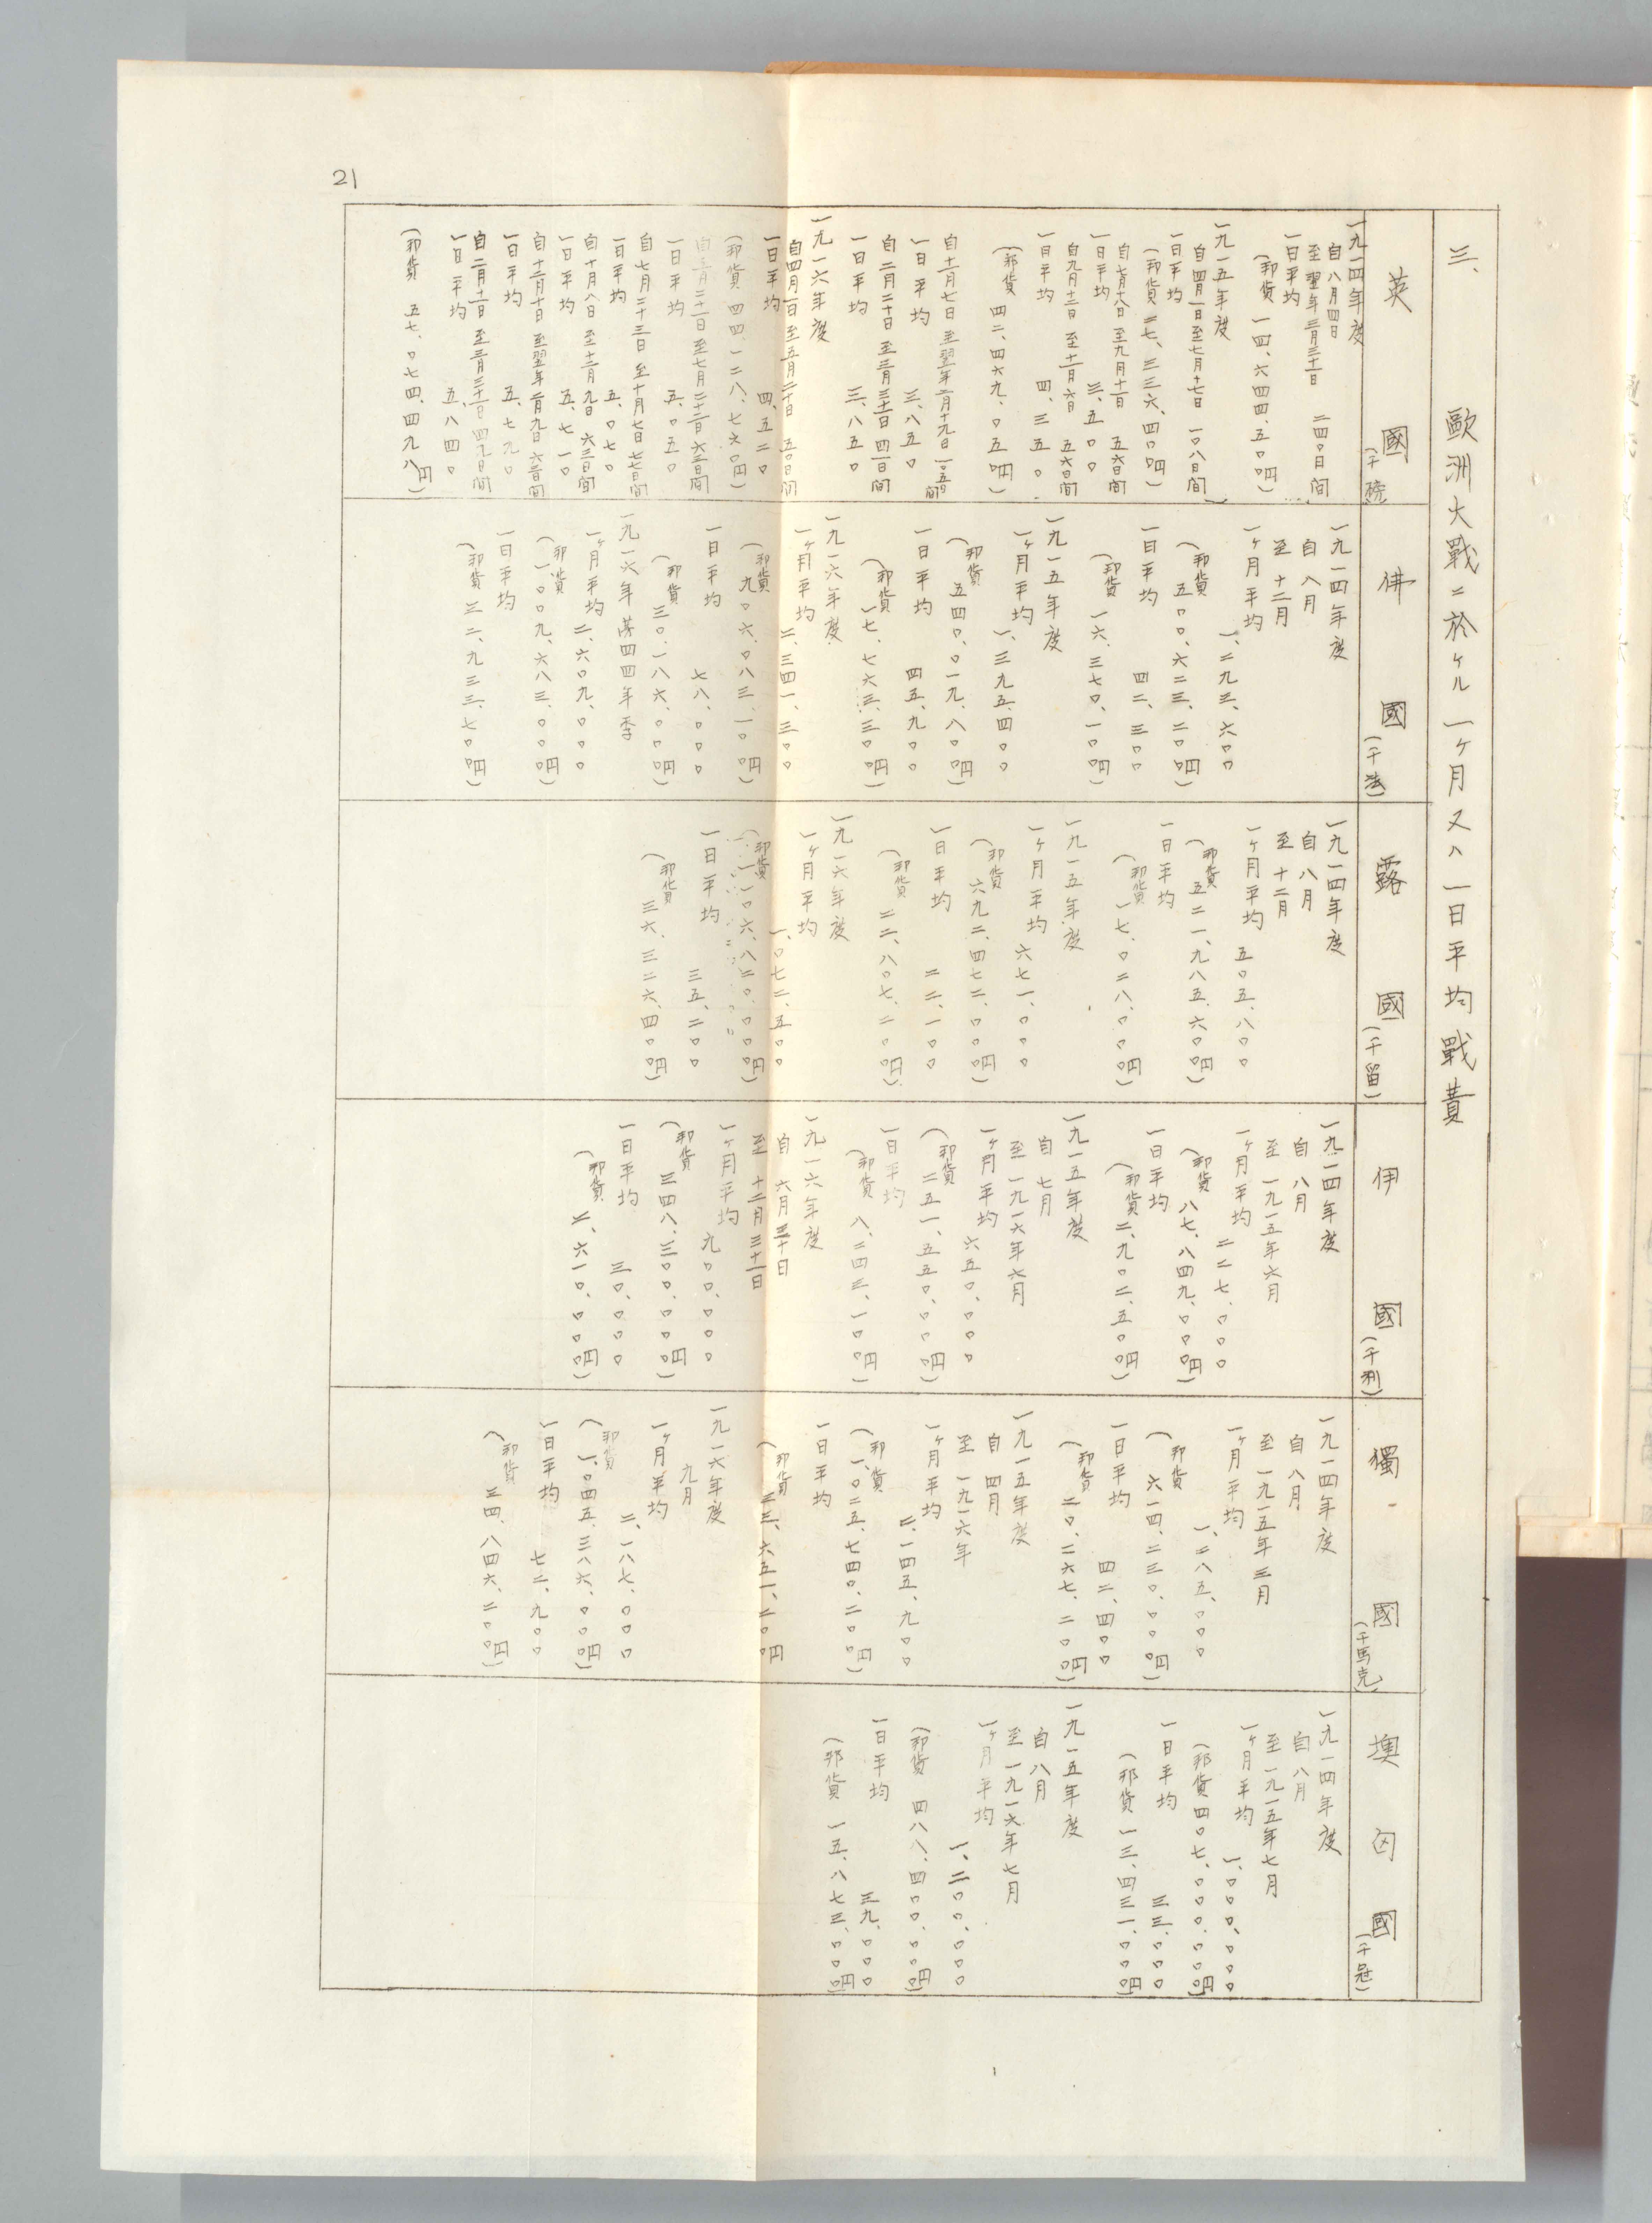 21
三、歐洲大戰ニ於ケル一ヶ月又ハ一日平均戰費
英國
(千磅)
一九一四年度
自八月四日
至翌年三月三十一日 二四〇日間
一日平均
(邦貨 一四、六四四、五〇〇円)
一九一五年度
自四月一日至七月十七日 一〇八日間
一日平均
(邦貨 二七、三三六、四〇〇円)
自七月十八日至九月十一日 五六日間
一日平均 三、五〇〇
自九月十二日至十一月六日 五六日間
一日平均 四、三五〇
(邦貨 四二、四六九、〇五〇円)
自十一月七日至翌年二月十九日 一〇五日間
一日平均 三、八五〇
自二月二十日至三月三十一日 四一日間
一日平均 三、八五〇
一九一六年度
自四月一日至五月二十日 五〇日間
一日平均 四、五二〇
(邦貨 四四、一二八、七六〇円)
至七月二十二日 六三日間
一日平均 五、〇五〇
自七月二十三日至十月七日 七七日間
一日平均 五、〇七〇
自十月八日至十二月九日 六三日間
一日平均 五、七一〇
自十二月十日至翌年二月九日 六二日間
一日平均 五、七九〇
自二月十一日至三月三十一日 四九日間
一日平均 五、八四〇
(邦貨 五七、〇七四、四九八円)
佛國
(千法)
一九一四年度
自八月
至十二月
一ヶ月平均 一、二九三、六〇〇
(邦貨 五〇〇、六二三、二〇〇円)
一日平均 四二、三〇〇
(邦貨 一六、三七〇、一〇〇円)
一九一五年度
一ヶ月平均 一、三九五、四〇〇
(邦貨 五四〇、〇一九、八〇〇円)
一日平均 四五、九〇〇
(邦貨 一七、七六三、三〇〇円)
一九一六年度
一ヶ月平均 二、三四一、三〇〇
(邦貨 九〇六、〇八三、一〇〇円)
一日平均 七八、〇〇〇
(邦貨 三〇、一八六、〇〇〇円)
一九一六年第四四年季
一ヶ月平均 二、六〇九、〇〇〇
(邦貨 一、〇〇九、六八三、〇〇〇円)
一日平均
(邦貨 三二、九三三、七〇〇円)
露國
(千留)
一九一四年度
自八月
至十二月
一ヶ月平均 五〇五、八〇〇
(邦貨 五二一、九八五、六〇〇円)
一日平均
(邦貨 一七、〇二八、〇〇〇円)
一九一五年度
一ヶ月平均 六七一、〇〇〇
(邦貨 六九二、四七二、〇〇〇円)
一日平均 二二、一〇〇
(邦貨 二二、八〇七、二〇〇円)
一九一六年度
一ヶ月平均 一、〇七二、五〇〇
(邦貨 一、一〇六、八二〇、〇〇〇円)
一日平均 三五、二〇〇
(邦貨 三六、三二六、四〇〇円)
伊國
(千利)
一九一四年度
自八月
至一九一五年六月
一ヶ月平均 二二七、〇〇〇
(邦貨 八七、八四九、〇〇〇円)
一日平均
(邦貨 二、九〇二、五〇〇円)
一九一五年度
自七月
至一九一六年六月
一ヶ月平均 六五〇、〇〇〇
(邦貨 二五一、五五〇、〇〇〇円)
一日平均
(邦貨 八、二四三、一〇〇円)
一九一六年度
自六月三十日
至十二月三十一日
一ヶ月平均 九〇〇、〇〇〇
(邦貨 三四八、三〇〇、〇〇〇円)
一日平均 三〇、〇〇〇
(邦貨 一、六一〇、〇〇〇円)
獨國
(千馬克)
一九一四年度
自八月
至一九一五年三月
一ヶ月平均 一、二八五、〇〇〇
(邦貨 六一四、二三〇、〇〇〇円)
一日平均 四二、四〇〇
(邦貨 二〇、二六七、二〇〇円)
一九一五年度
自四月
至一九一六年
一ヶ月平均 二、一四五、九〇〇
(邦貨 一、〇二五、七四〇、二〇〇円)
一日平均
(邦貨 三三、六五一、二〇〇円
一九一六年度
九月
一ヶ月平均 二、一八七、〇〇〇
(邦貨 一、〇四五、三八六、〇〇〇円)
一日平均 七二、九〇〇
(邦貨 三四、八四六、二〇〇円)
墺匈國
(千冠)
一九一四年度
自八月
至一九一五年七月
一ヶ月平均 一、〇〇〇、〇〇〇
(邦貨 四〇七、〇〇〇、〇〇〇円)
一日平均 三三、〇〇〇
(邦貨 一三、四三一、〇〇〇円)
一九一五年度
自八月
至一九一六年七月
一ヶ月平均 一、二〇〇、〇〇〇
(邦貨 四八八、四〇〇、〇〇〇円)
一日平均 三九、〇〇〇
(邦貨 一五、八七三、〇〇〇円)